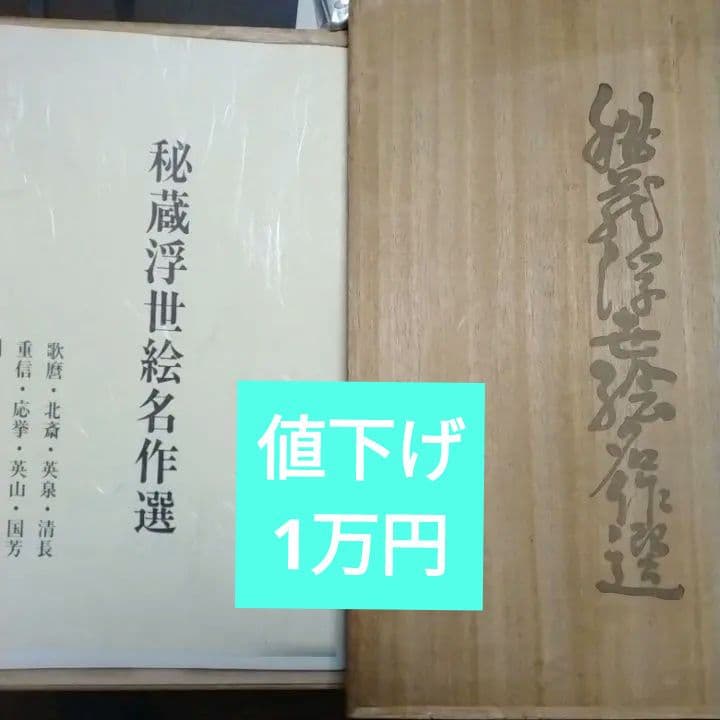 秘蔵浮世絵名作選
歌麿・北斎・英泉・清長
重信・応挙・英山・国芳
秘蔵浮世絵名作選
値下げ
1万円